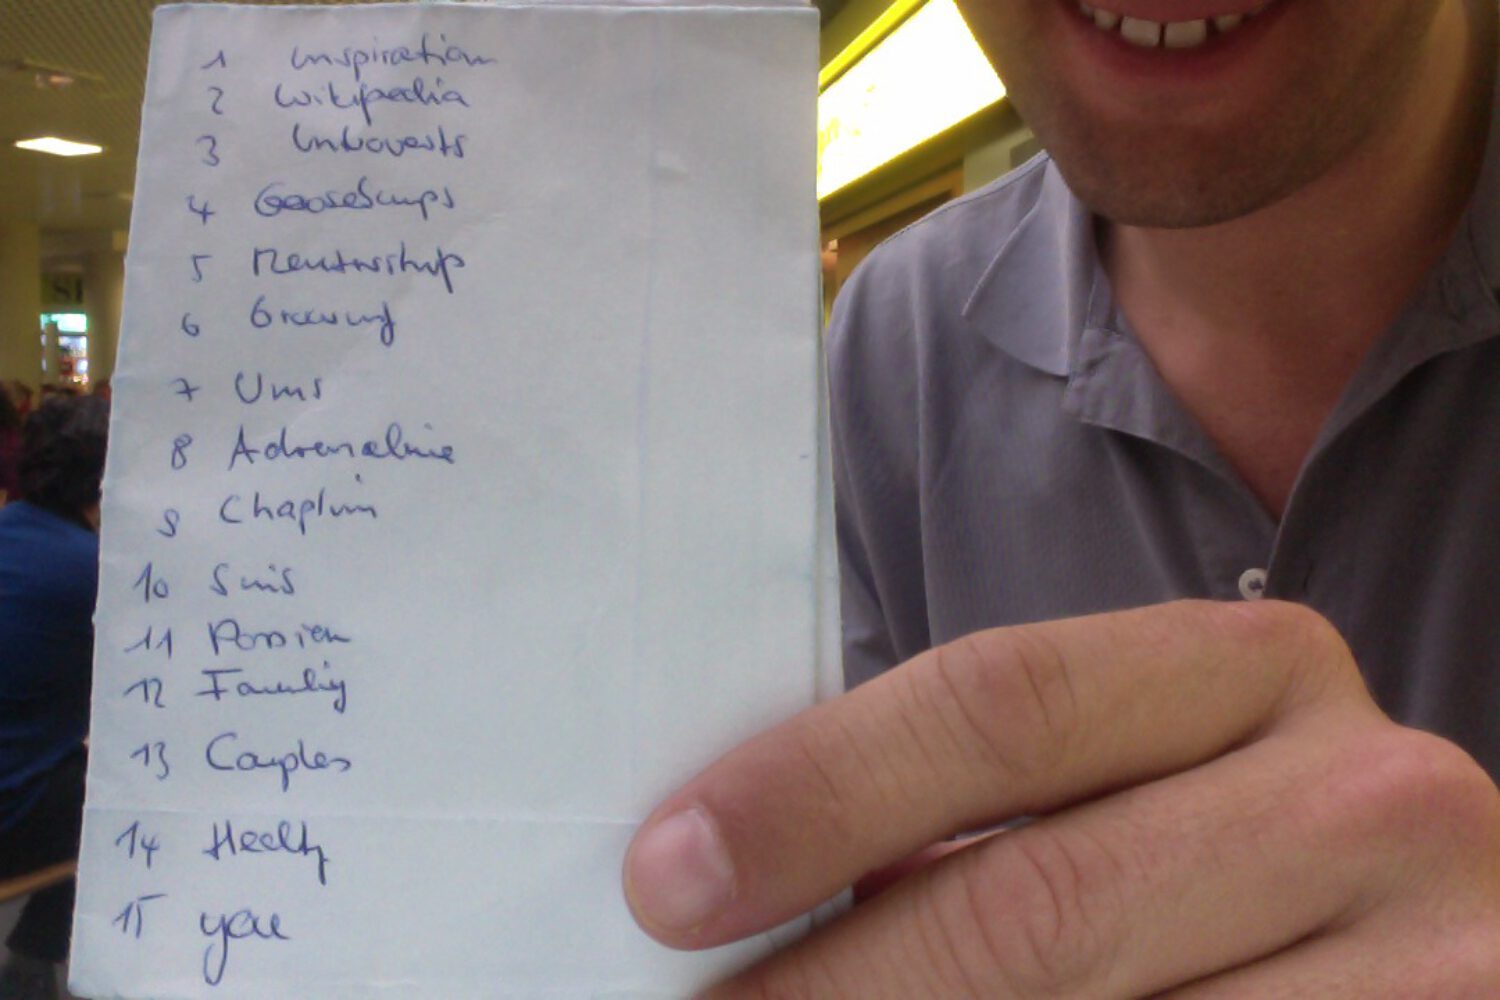 1 Inspiration
2 Wikipedia
3 Introverts
4 Goosebumps
5 Mentorship
6 Growing
7 Ums
8 Adrenaline
9 Chaplin
10 Sins
11 Passion
12 Family
13 Couples
14 Health
15 you